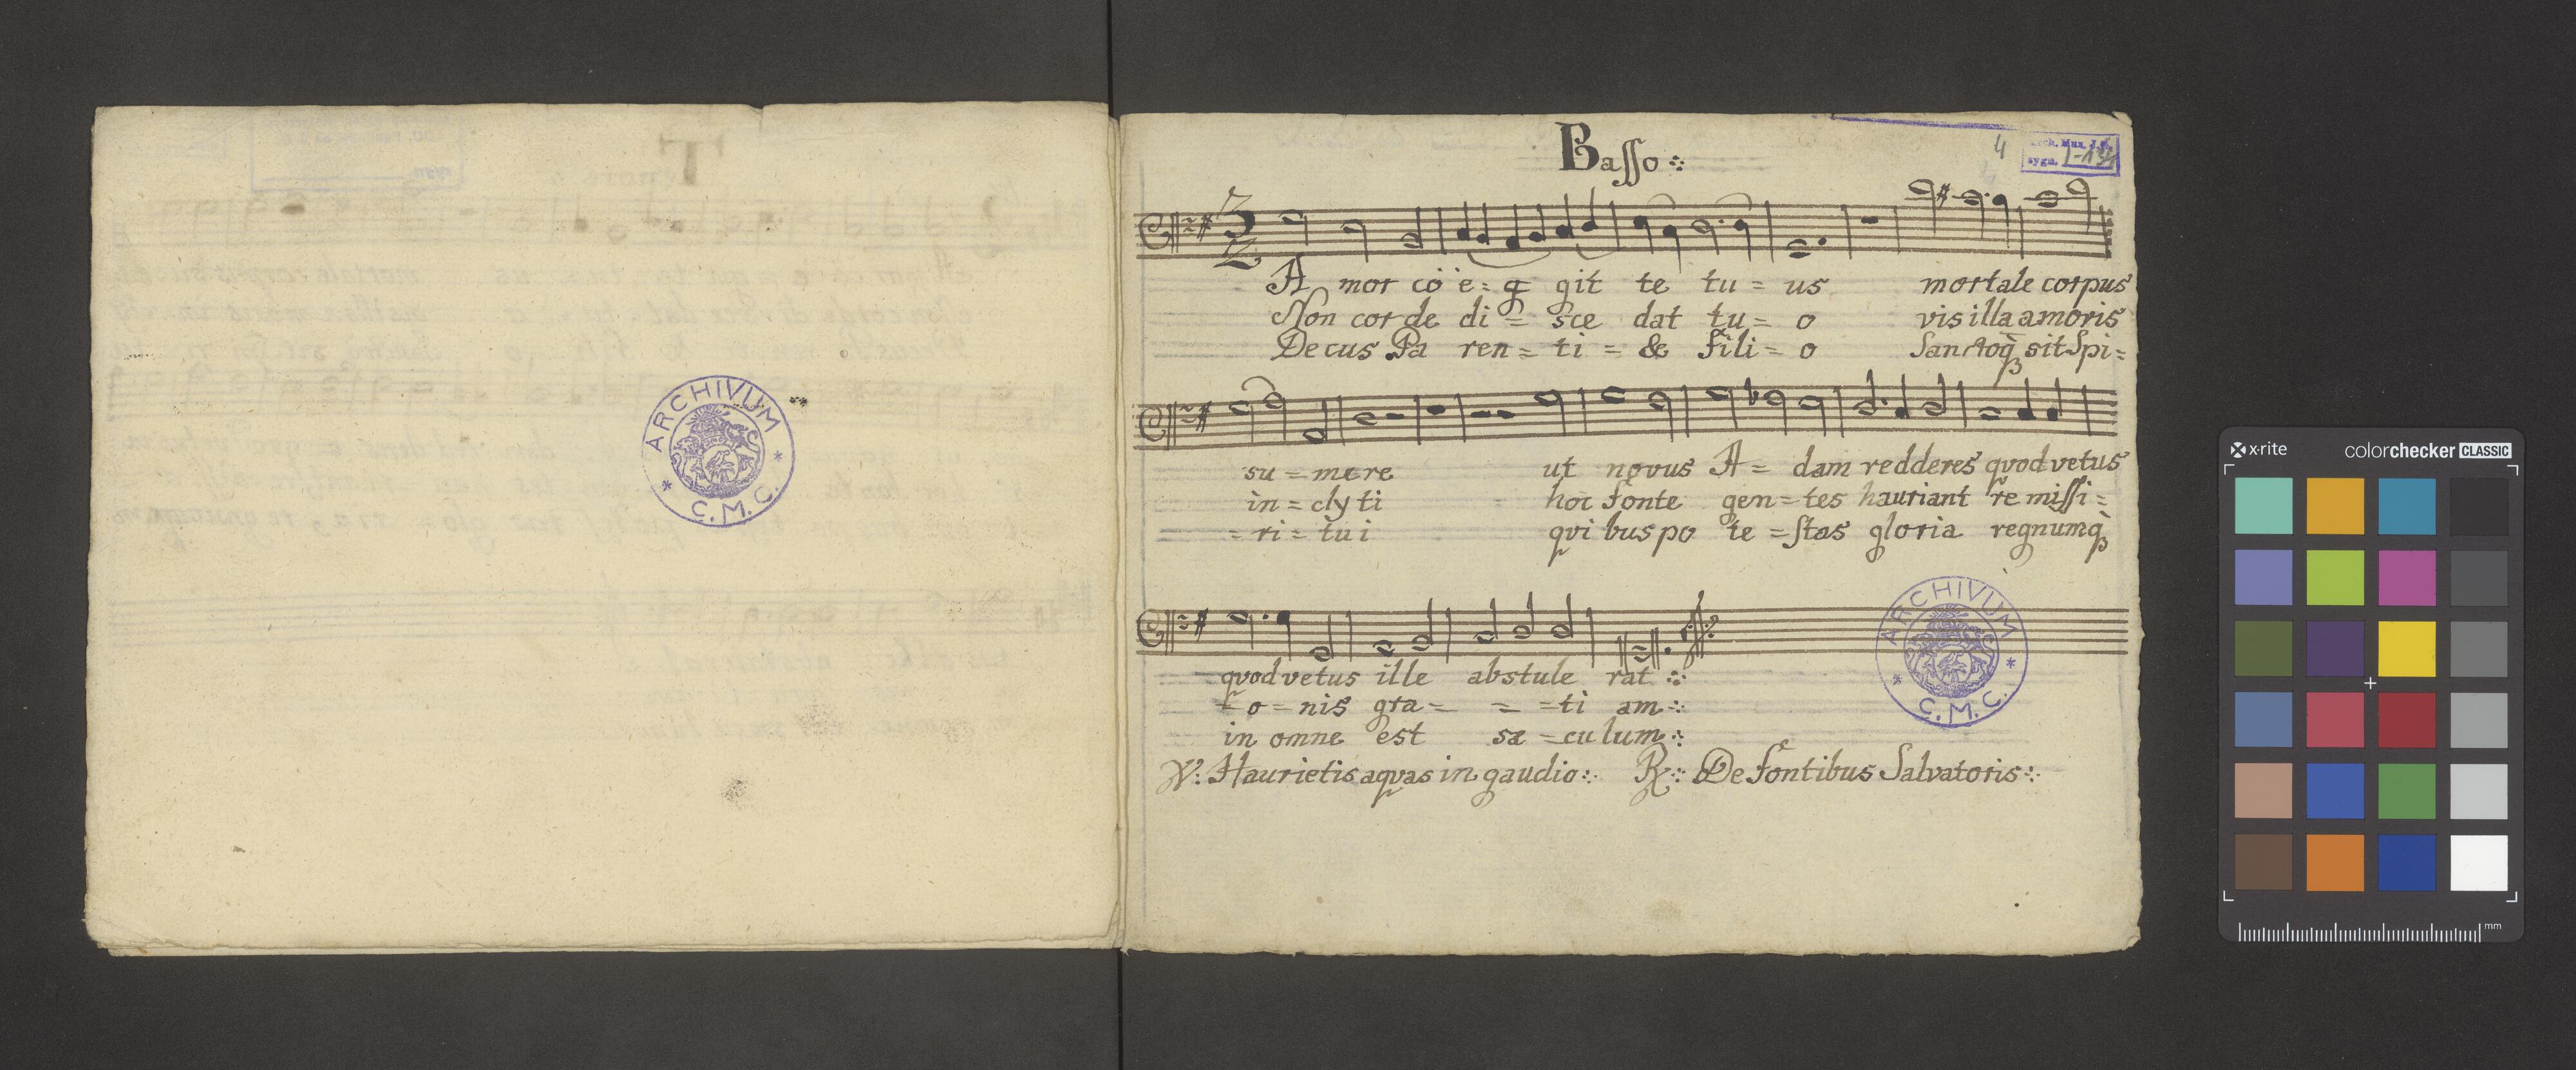 ARCHIVUM
* C.M.C. *
Basso
4
sygn. I-131
3
2
A mor co ë = g git te tu = us mortale corpus
Non cor de di = sce dat tu = o vis illa amoris
De cus Pa ren = ti = & fili = o Sanctoq̃ sit Spi =
su = mere ut novus A = dam redderes qvod vetus
in = cly ti hoc fonte gen = tes hauriant re missi =
= ri = tu i qvi bus po te = stas gloria regnumq̀
qvod vetus ille abstule rat
= o = nis gra = = = ti am
in omne est sæ = cu lum
ARCHIVUM
* C.M.C. *
℣: Haurietis aqvas in gaudio: ℟: De fontibus Salvatoris
x-rite colorchecker CLASSIC
mm